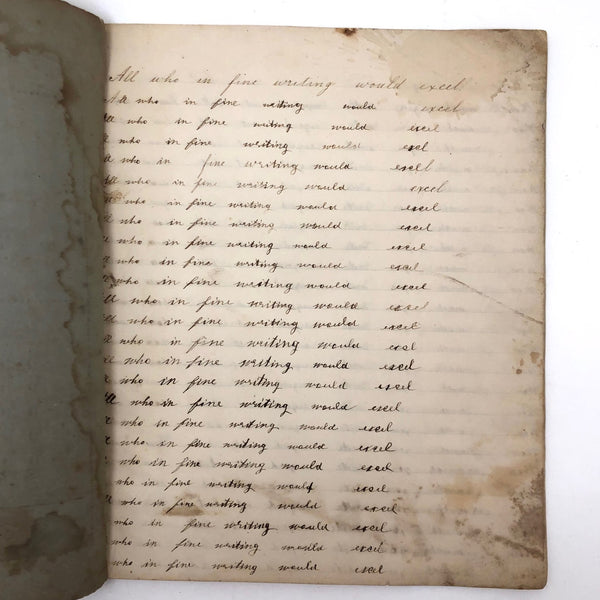 All who in fine writing would excel
All who in fine writing would excel
ll who in fine writing would excel
ll who in fine writing would excel
ll who in fine writing would excel
All who in fine writing would excel
ll who in fine writing would excel
ll who in fine writing would excel
ll who in fine writing would excel
ll who in fine writing would excel
ll who in fine writing would excel
ll who in fine writing would excel
ll who in fine writing would excel
ll who in fine writing would excel
ll who in fine writing would excel
ll who in fine writing would excel
All who in fine writing would excel
ll who in fine writing would excel
who in fine writing would excel
who in fine writing would excel
who in fine writing would excel
ll who in fine writing would excel
who in fine writing would excel
who in fine writing would excel
who in fine writing would excel